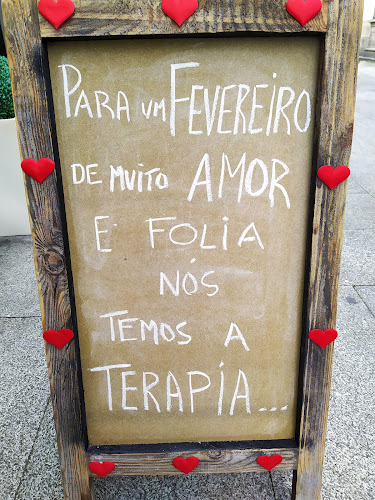 PARA UM FEVEREIRO
DE MUITO AMOR
E FOLIA
NÓS
TEMOS A
TERAPIA...